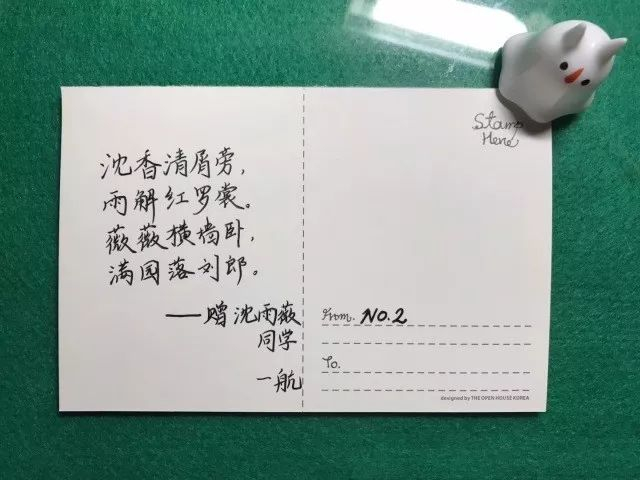 沈香清屑旁，
雨解红罗裳。
薇薇横墙卧，
满园落刘郎。
——赠沈雨薇
同学
一航
Stamp
Here
From. NO.2
To.
designed by THE OPEN HOUSE KOREA